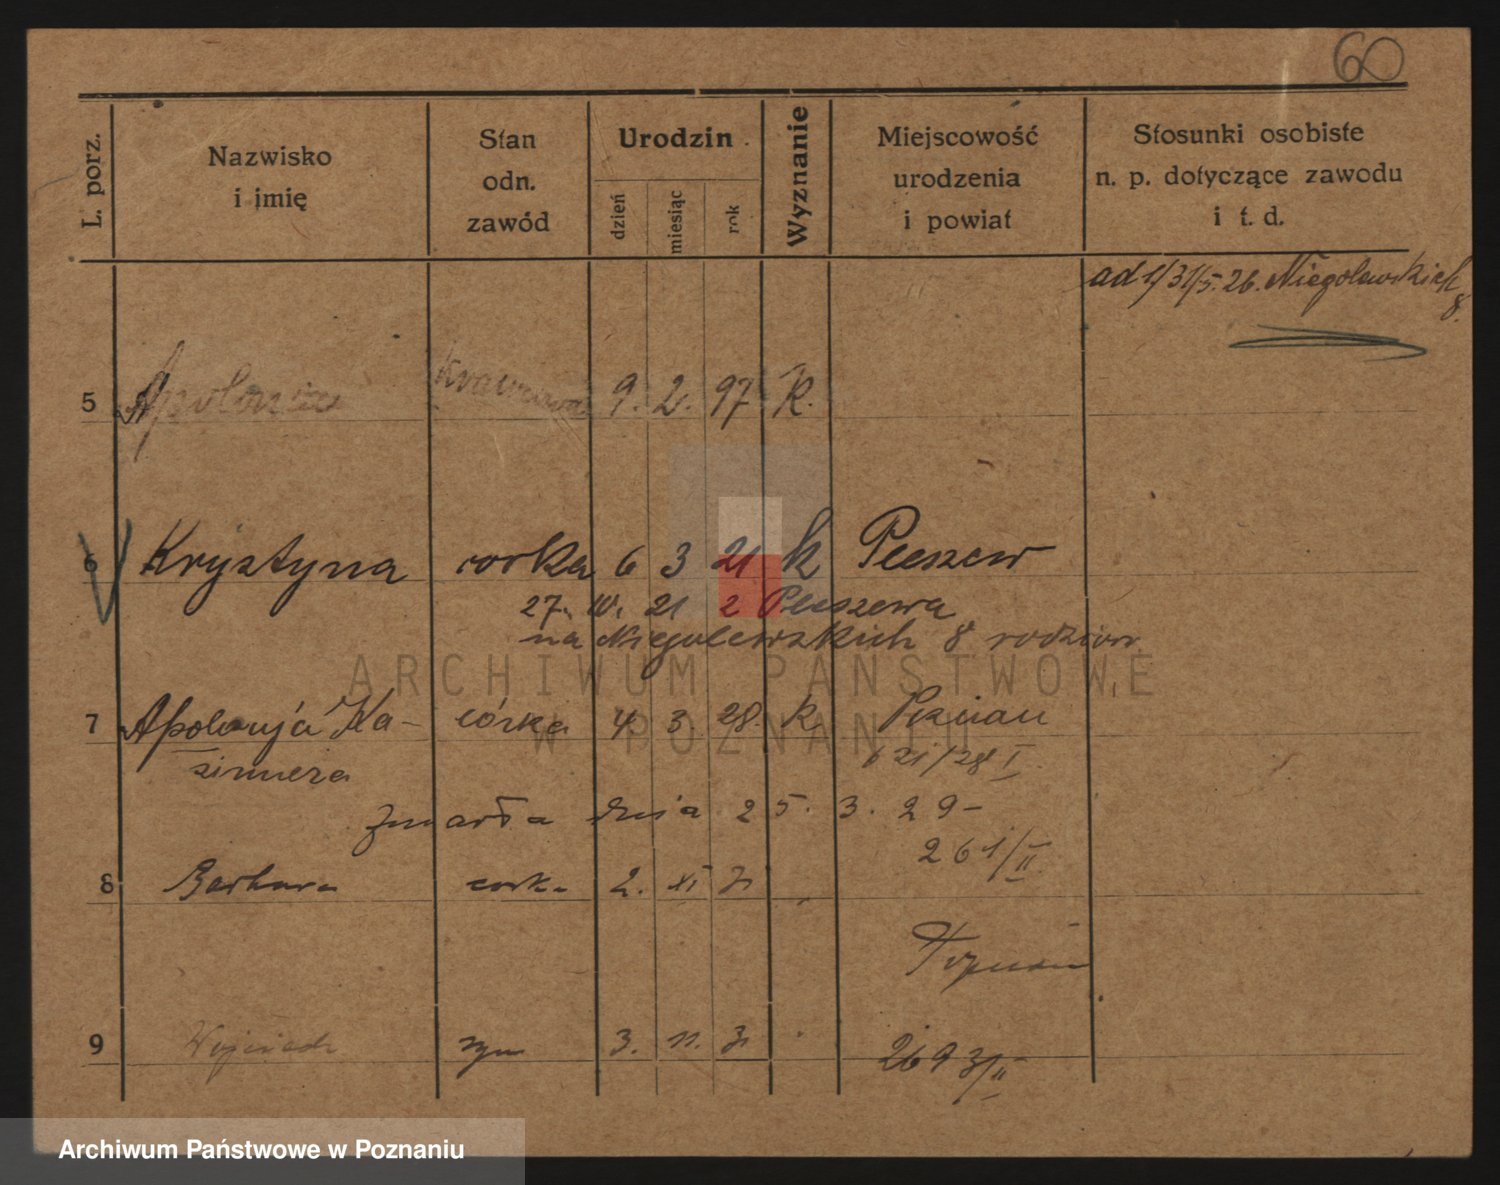 60
L. porz.
Nazwisko
i imię
Stan
odn.
zawód
Urodzin
dzień
miesiąc
rok
Wyznanie
Miejscowość
urodzenia
i powiat
Stosunki osobiste
n. p. dotyczące zawodu
i t. d.
ad 1/31/5.26. Niegolewskich
8.
5 Apolonia krawcowa 9. 2. 97 K.
6 Krystyna corka 6 3 21 k Pleszew
27. IV. 21 z Pleszewa
na Niegolewskich 8 rodziców
7 Apolonja Ka- córka 4. 3. 28. k Poznań
zimiera 621/28 I
zmarła dnia 25. 3. 29-
261/II
8 Barbara corka 2. XI 31
Poznań
9 Wojciech syn 3. 11. 31
2693/II
ARCHIWUM PAŃSTWOWE
W POZNANIU
Archiwum Państwowe w Poznaniu